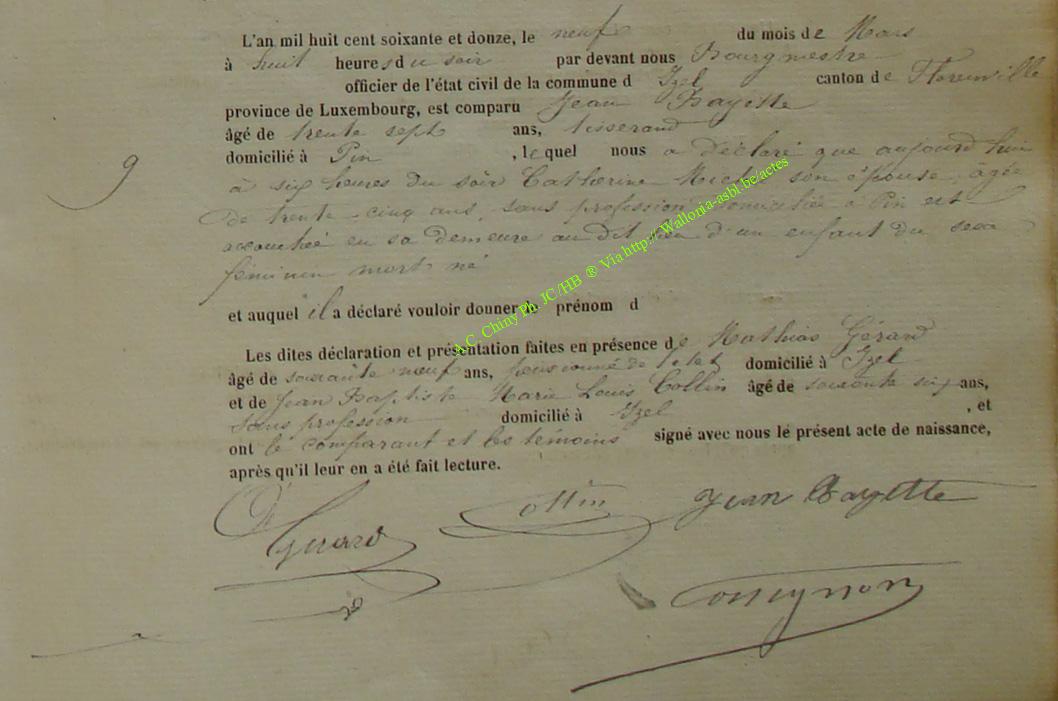 L'an mil huit cent soixante et douze, le neuf du mois de Mars
à huit heures du soir par devant nous Bourgmestre
officier de l'état civil de la commune d Izel canton de Florenville
province de Luxembourg, est comparu Jean Bayette
âgé de trente sept ans, tisserand
9 domicilié à Pin , lequel nous a déclaré que aujourd'hui
à six heures du soir Catherine Michel son épouse, âgée
de trente-cinq ans, sans profession domiciliée à Pin est
accouchée en sa demeure au dit lieu d'un enfant du sexe
féminin mort né
et auquel il a déclaré vouloir donner le prénom d
Les dites déclaration et présentation faites en présence de Mathias Gérard
âgé de soixante neuf ans, pensionné de l'etat domicilié à Izel
et de Jean Baptiste Marie Louis Collin âgé de soixante six ans,
sans profession domicilié à Izel , et
ont le comparant et les témoins signé avec nous le présent acte de naissance,
après qu'il leur en a été fait lecture.
Gerard Collin Jean Bayette
A.C. Chiny Ph. JC/HB ® Via http://Wallonia-asbl.be/actes